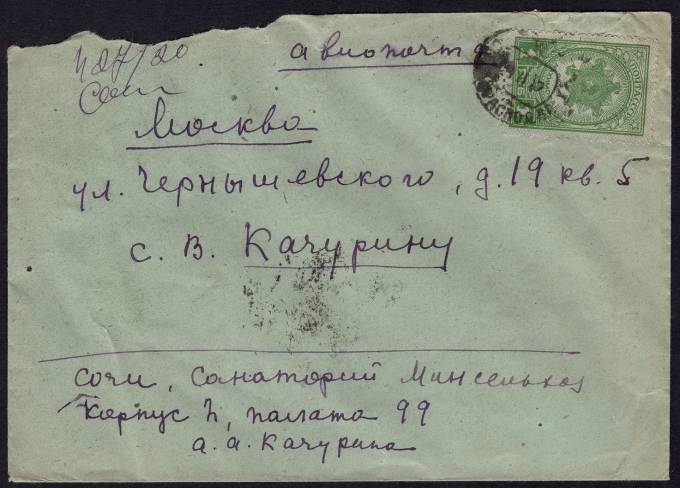 авиапочт
Москва
ул. Чернышевского, д. 19 кв. 5
С. В. Качурину
Сочи, Санаторий Минсельхоз
Корпус 2, палата 99
А. А. Качурина